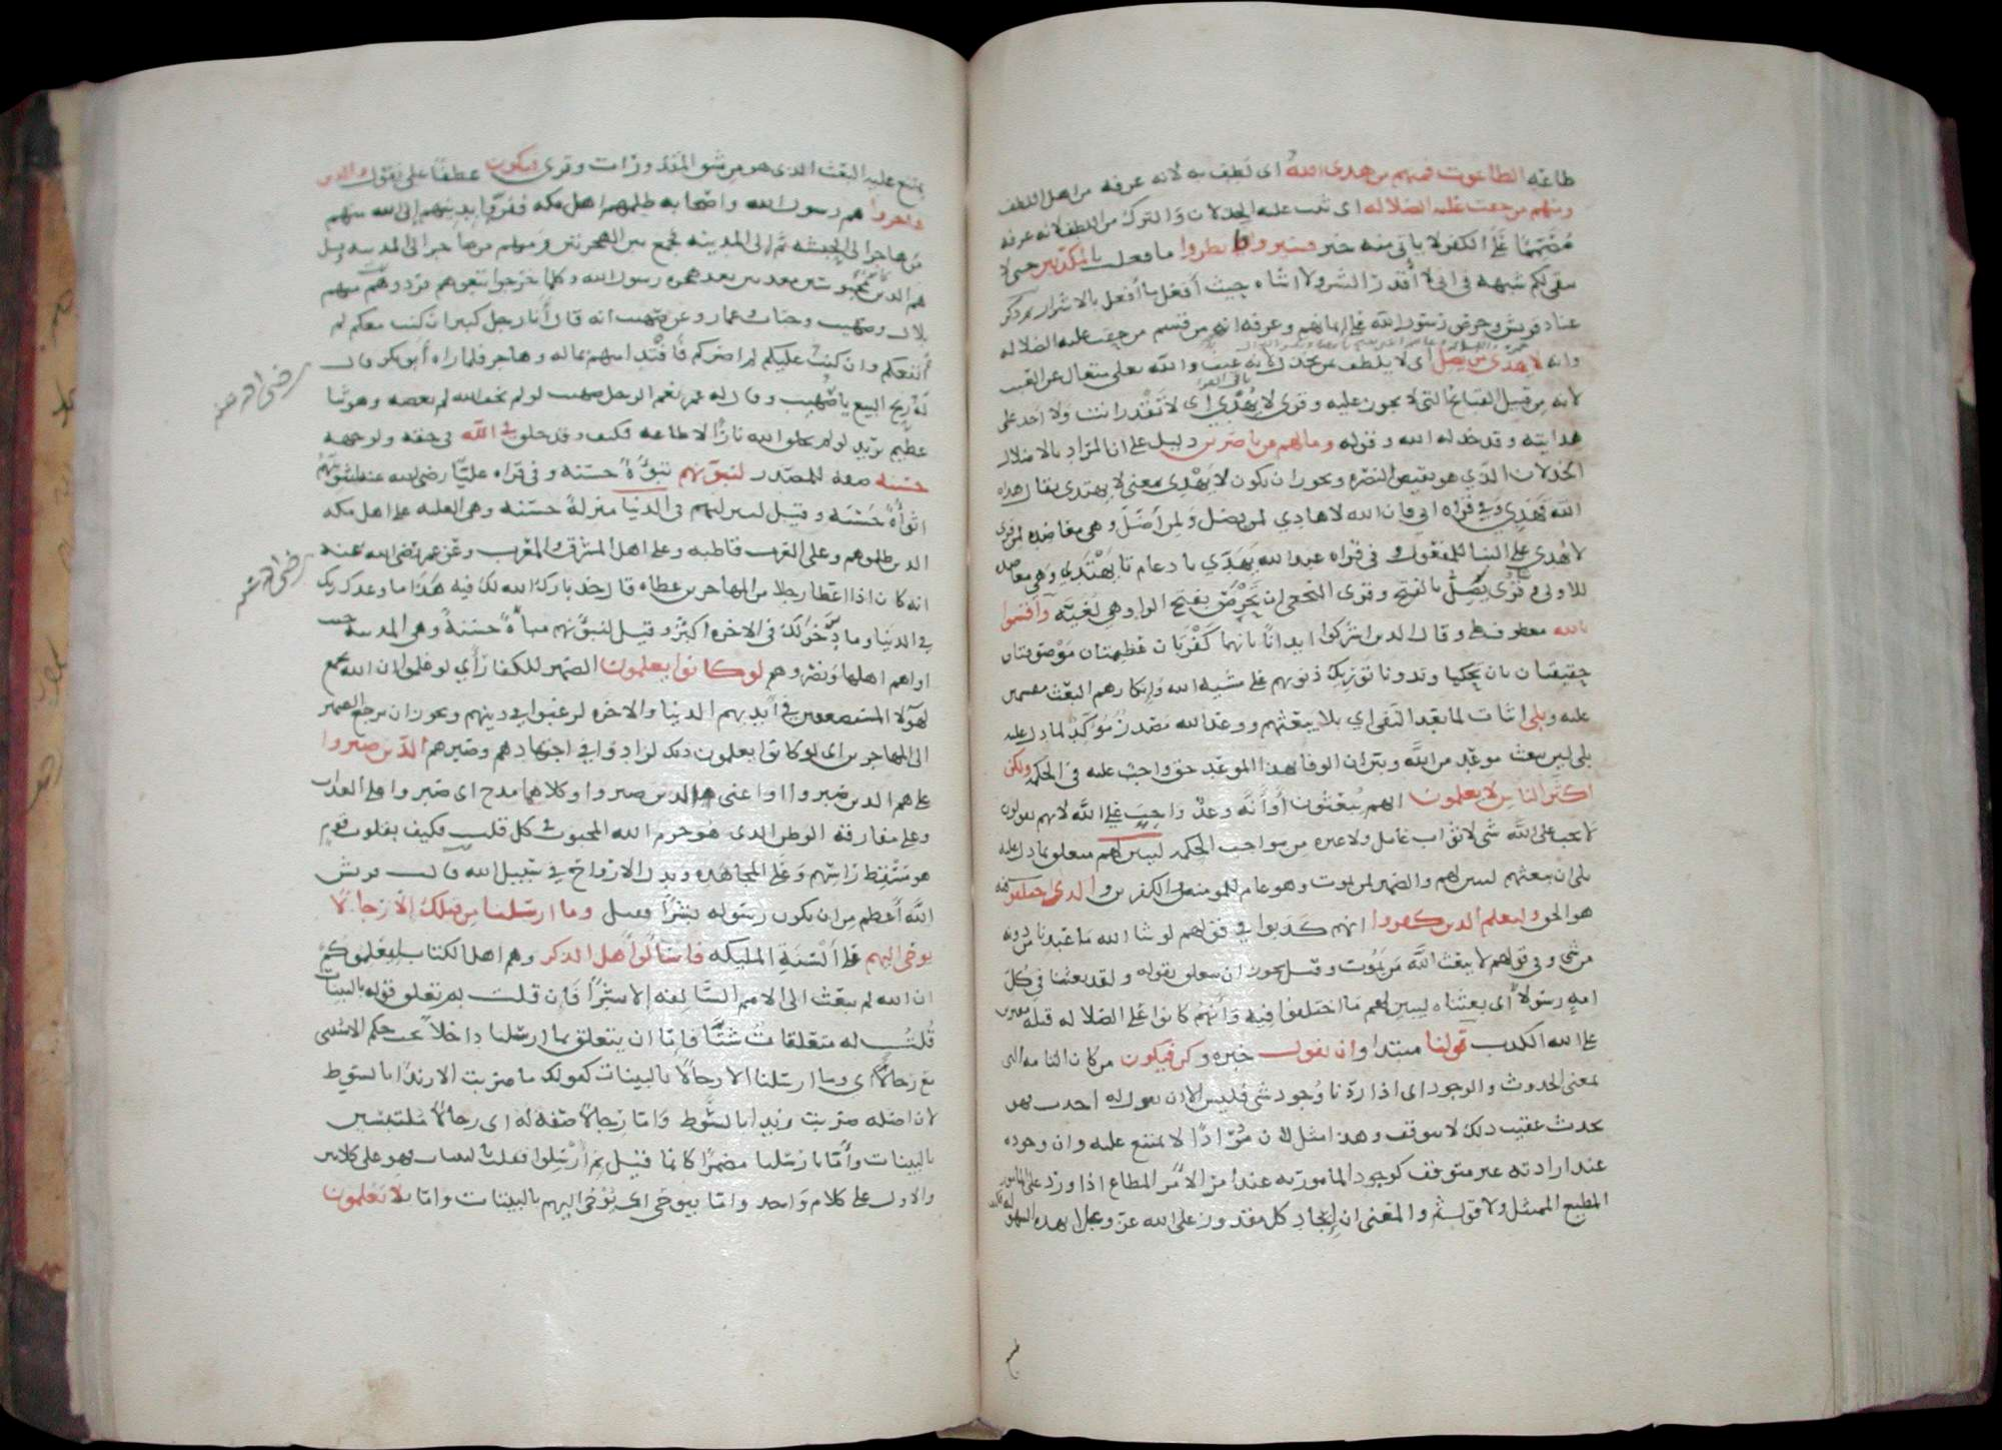 طاعته الطاغوت فمنهم من هدى الله اى لطف به لانه عرفه من اهل اللطف
ومنهم من حقت عليه الضلاله اى ثبت عليه الخذلان والترك من اللطف لانه عرفه
مصمما على الكفر لا ياتى منه خير فسيروا فانظروا ما فعلت بالمكذبين حتى لا
يبقى لكم شبهه فى انى لا أقدر الشر ولا اشاه حيث أفعل ما أفعل بالاشرار ثم ذكر
عناد قريش وحرص رسول الله على ايمانهم وعرفه انهم من قسم من حقت عليه الضلاله
وانه لا يهدى من يضل اى لا يلطف بمن يخذل لانه عبث والله تعلى متعال عن العبث
لانه من قبيل القبايح التى لا تجوز عليه وقرى لا يهدى اى لا تقدر انت ولا احد على
هدايته وقد خذله الله وقوله وما لهم من ناصرين دليل على ان المراد بالاضلال
الخذلان الذي هو نقيض النصره ويجوز ان يكون لا يهدى بمعنى لا يهتدى يقال هداه
الله فهدي وفي قراه ابي فان الله لا هادي لمن يضل ولمن أضل وهى معاضده لمن قرى
لا يُهدى على البنا للمفعول وفى قراه عبد الله يهدّي بادغام تا يهتدي وهي معاضده
للاولى وقرى يضل بالفتح وقرى النخعى ان تحرص بفتح الرا وهى لغيه وأقسموا
بالله معطوف على وقال الذين اشركوا ايذانًا بانهما كفرتان عظيمتان موصوفتان
حقيقتان بان تحكيا وتدونا توريك ذنوبهم على مشيه الله وانكارهم البعث مقسمين
عليه وبلى اثبات لما بعد النفى اي بلى يبعثهم ووعد الله مصدر مؤكد لما دل عليه
بلى لان يبعث موعد من الله وبين ان الوفا بهذا الموعد حق واجب عليه فى الحكمه ولكن
اكثر الناس لا يعلمون انهم يبعثون أو أنه وعد واجب على الله لانهم يقولون
لا يجب على الله شى لا ثواب عامل ولا غيره من مواجب الحكمه ليبين لهم متعلق بما دل عليه
بلى اى يبعثهم ليبين لهم والضمير لمن يموت وهو عام للمومنين والكفرين والذى اختلفوا فيه
هو الحق وليعلم الذين كفروا انهم كذبوا في قولهم لو شا الله ما عبدنا من دونه
من شى وفى قولهم لا يبعث الله من يموت وقيل يجوز ان يتعلق بقوله ولقد بعثنا فى كل
امه رسولا اى بعثناه ليبين لهم ما اختلفوا فيه وأنهم كانوا على الضلاله قبله مفترين
على الله الكذب قولنا مبتدا وان نقول خبره وكن فيكون من كان التامه التى
بمعنى الحدوث والوجود اى اذا اردنا وجود شى فليس الا ان نقول له احدث فهو
يحدث عقيب ذلك لا يتوقف وهذا مثل لان مُرادًا لا يمتنع عليه وان وجوده
عند ارادته غير متوقف كوجود المامور به عند أمر الآمر المطاع اذا ورد على المامور
المطيع الممتثل ولا قول ثم والمعنى ان ايجاد كل مقدور على الله عز وجل بهذه السهوله فكيف
يمتنع عليه البعث الذى هو من شق المقدورات وقرى فيكون عطفًا على نقول والذين
هاجروا هم رسول الله واصحابه ظلمهم اهل مكه ففروا بدينهم إلى الله منهم
من هاجر الى الحبشه ثم الى المدينه فجمع بين الهجرتين ومنهم من هاجر الى المدينه وقيل
هم الذين كانوا محبوسين معذبين بعد هجره رسول الله وكلما خرجوا تبعوهم فردوهم منهم
بلال وصهيب وخباب وعمار وعن صهيب انه قال أنا رجل كبير ان كنت معكم لم
أنفعكم وان كنت عليكم لم اضركم فافتدا منهم بماله وهاجر فلما راه أبو بكر قال
له ربح البيع يا صهيب وقال له عمر نعم الرجل صهيب لو لم يخف الله لم يعصه وهو ثنا
عظيم يريد لو لم يخلق الله نارًا لاطاعه فكيف وقد خلق في الله فى حقه ولوجهه
حسنه صفه للمصدر لنبوئنهم تبوئةً حسنه وفى قراه على رضى الله عنه لنثوينهم
اثواةً حسنه وقيل لننزلنهم فى الدنيا منزلةً حسنه وهى الغلبه على اهل مكه
الذين ظلموهم وعلى العرب قاطبه وعلى اهل المشرق والمغرب وعن عمر رضى الله عنه
انه كان اذا اعطا رجلا من المهاجرين عطاء قال خذ بارك الله لك فيه هذا ما وعدك ربك
في الدنيا وما ذخر لك فى الاخره اكثر وقيل لنبوئنهم مباةً حسنةً وهى المدينه حيث
اواهم اهلها ونصروهم لو كانوا يعلمون الضمير للكفار أي لو علموا ان الله يجمع
لهولا المستضعفين في أيديهم الدنيا والاخره لرغبوا في دينهم ويجوز ان يرجع الضمير
الى المهاجرين اى لو كانوا يعلمون ذلك لزادوا في اجتهادهم وصبرهم الذين صبروا
على هم الذين صبروا او اعنى الذين صبروا وكلاهما مدح اى صبروا على العذاب
وعلى مفارقة الوطن الذى هو حرم الله المحبوب في كل قلب فكيف بقلوب قوم
هو مسقط راسهم وعلى المجاهده وبذل الارواح في سبيل الله قالت قريش
الله أعظم من ان يكون رسوله بشرًا فقيل وما ارسلنا من قبلك إلا رجالًا
يوحى اليهم على ألسنة المليكه فاسألوا أهل الذكر وهم اهل الكتاب ليعلموكم
ان الله لم يبعث الى الامم السالفه إلا بشرًا فان قلت بم تعلق قوله بالبينات
قلت له متعلقات شتى فاما ان يتعلق بما ارسلنا داخلًا تحت حكم الاستثنى
مع رجالًا اى وما ارسلنا الا رجالًا بالبينات كقولك ما ضربت الا زيدًا بالسوط
لان اصله ضربت زيدا بالسوط واما رجالًا صفة له اى رجالًا ملتبسين
بالبينات وأما بارسلنا مضمرًا كانما قيل بم أُرسلوا فقلت بالبينات فهو على كلامين
والاول على كلام واحد واما بيوحى اى يُوحى اليهم بالبينات واما بلا تعلمون
رضى الله عنه
رضى الله عنه